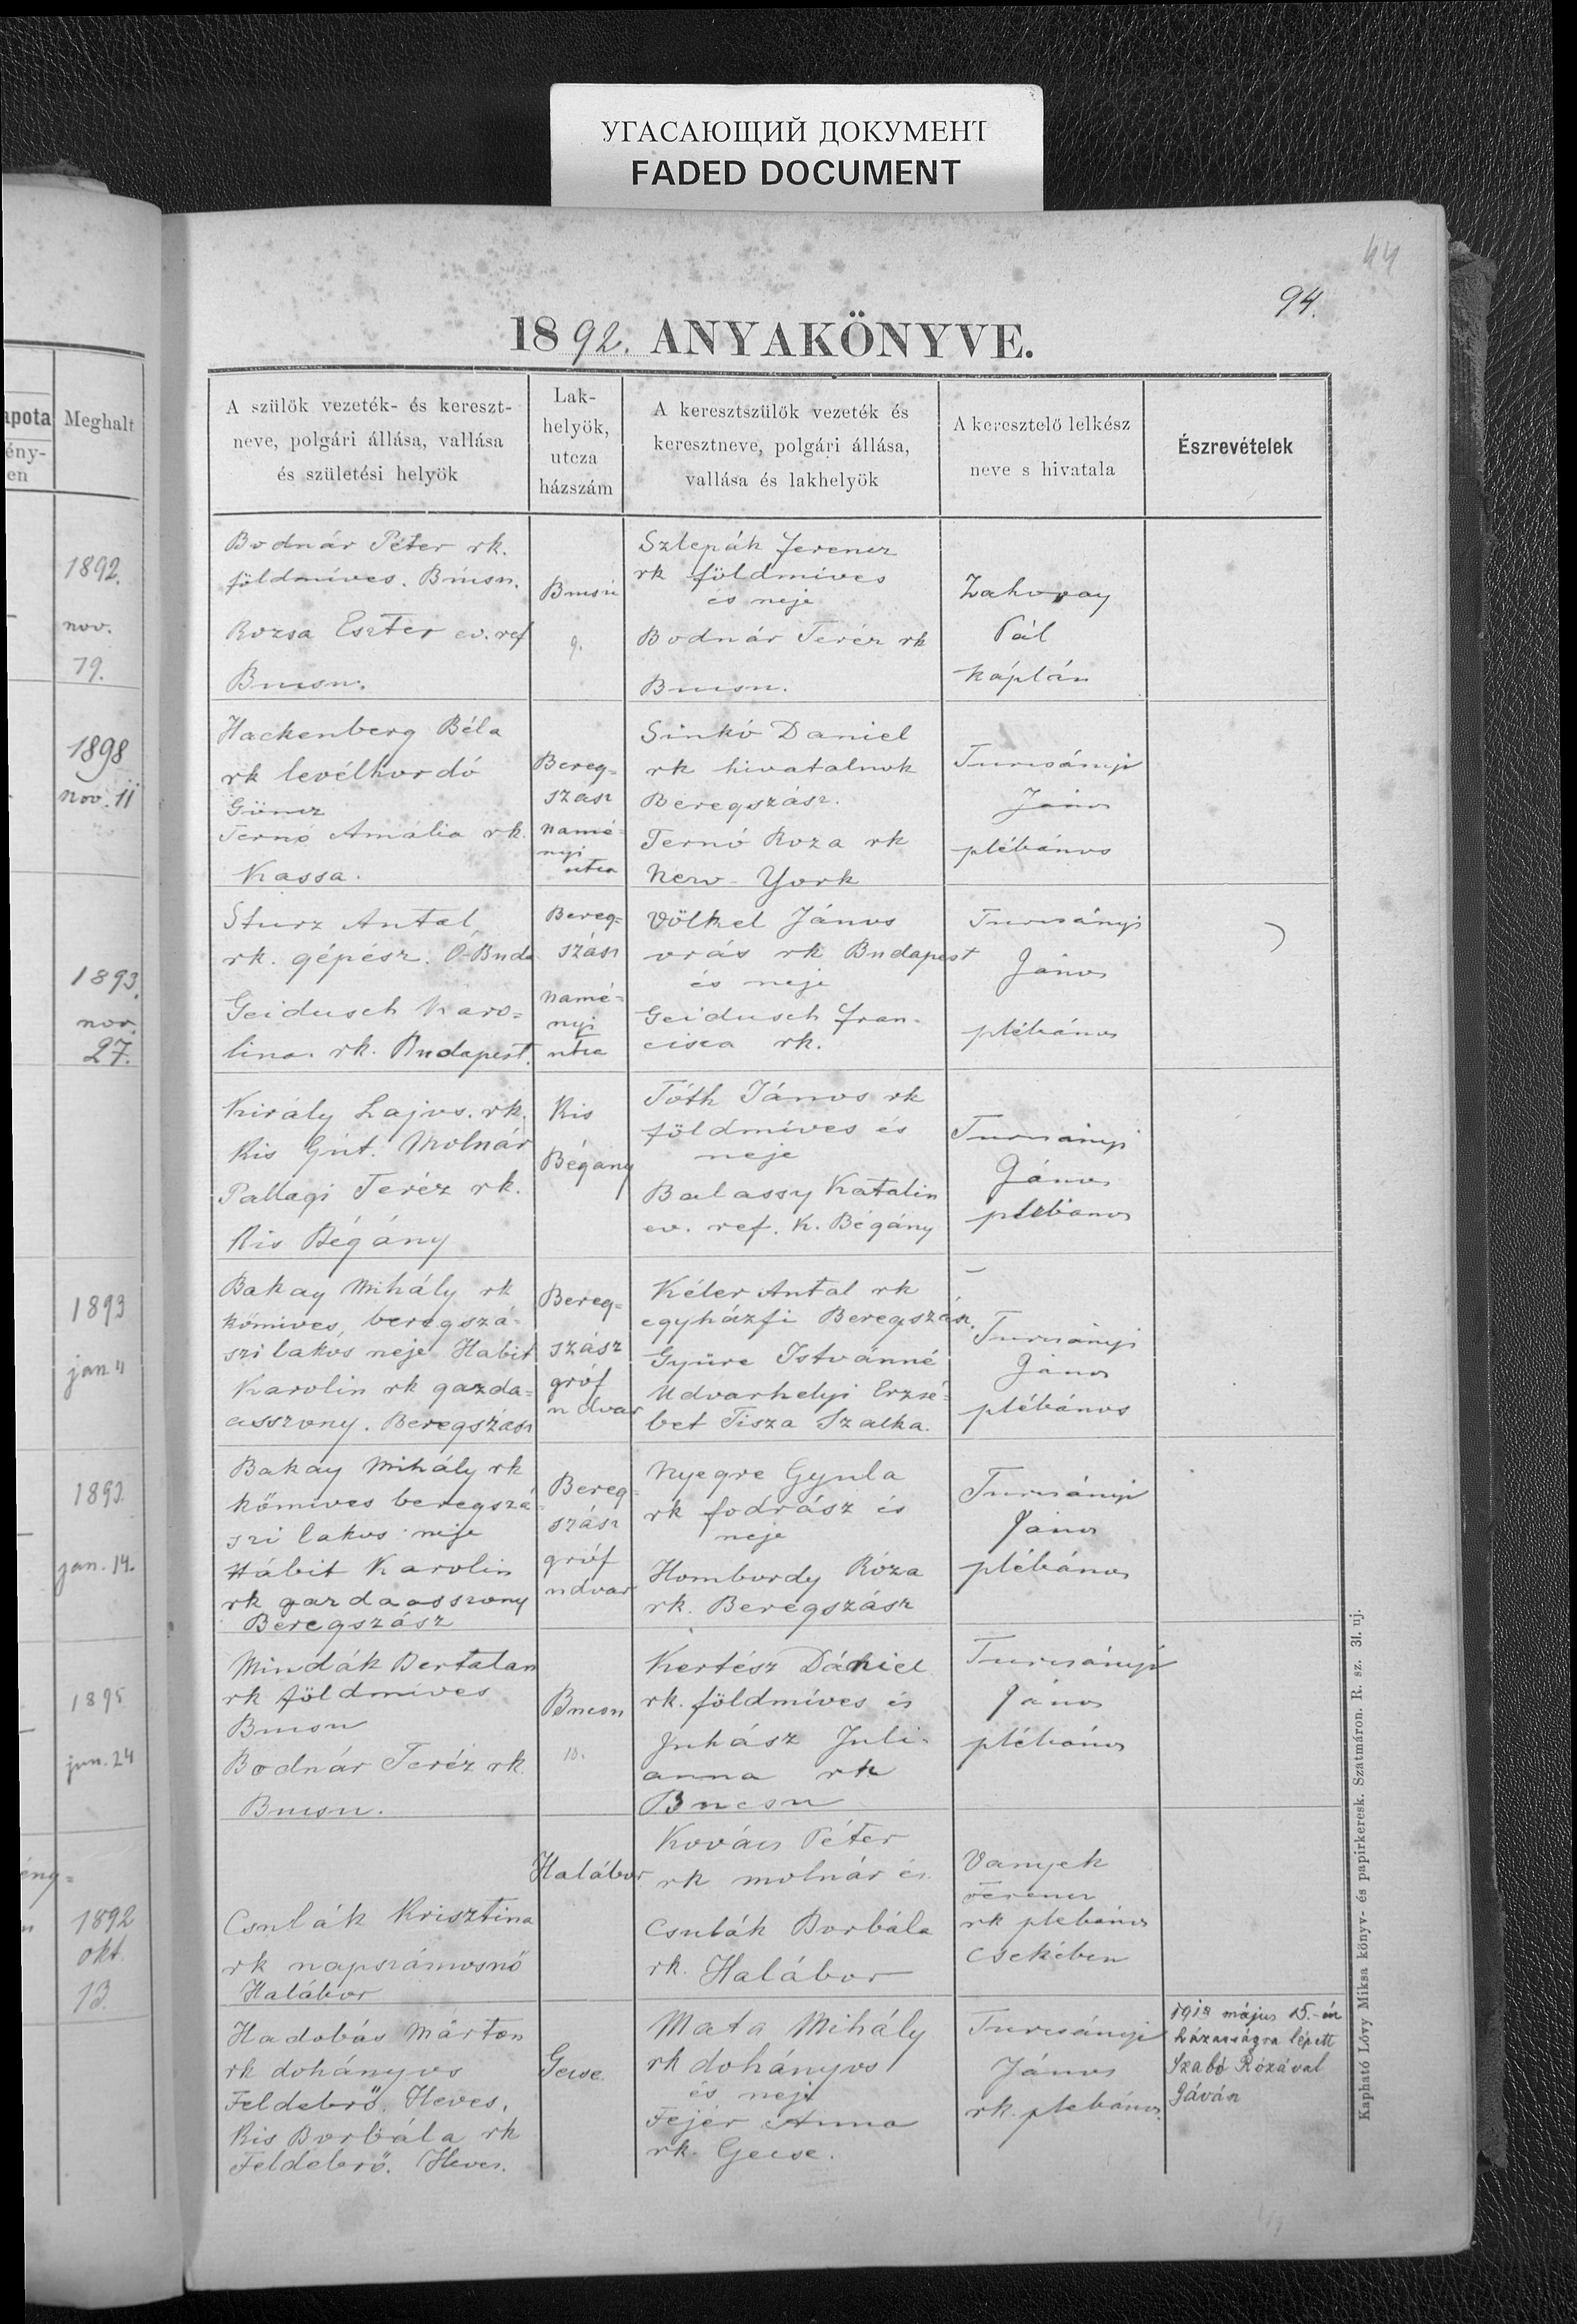 УГАСАЮЩИЙ ДОКУМЕНТ
FADED DOCUMENT
44
94.
1892. ANYAKÖNYVE.
apota
Meghalt
ény-
en
1892.
nov.
19.
1898
nov. 11
1893.
nov.
27.
1893
jan 11
1893.
jan. 14.
1895
jun. 24
ény=
1892
okt.
13.
A szülők vezeték- és kereszt-
neve, polgári állása, vallása
és születési helyök
Lak-
helyök,
utcza
házszám
A keresztszülők vezeték és
keresztneve, polgári állása,
vallása és lakhelyök
A keresztelő lelkész
neve s hivatala
Észrevételek
Bodnár Péter rk.
földmíves. Bucsu.
Rozsa Eszter ev. ref
Bucsu.
Bucsu
9.
Szlepák Ferencz
rk földmíves
és neje
Bodnár Teréz rk
Bucsu.
Zahoray
Pál
káplán
Hackenberg Béla
rk levélhordó
Göncz
Ternó Amália rk.
Kassa.
Bereg=
szász
Namé=
nyi
utca
Sinkó Daniel
rk hivatalnok
Beregszász.
Ternó Roza rk
New-York
Turcsányi
János
plébános
Sturz Antal
rk. gépész. Ó-Buda
Geidusch Karo=
lina. rk. Budapest.
Bereg=
szász
Namé=
nyi
utca
Völkel János
órás rk Budapest
és neje
Geidusch Fran-
cisca rk.
Turcsányi
János
plébános
Király Lajos. rk.
Kis Gút. Molnár
Pallagi Teréz rk.
Kis Bégány
Kis
Bégány
Tóth János rk
földmíves és
neje
Balassy Katalin
ev. ref. K. Bégány
Turcsányi
János
plébános
Bakay Mihály rk
kőmives beregszá-
szi lakós neje Habit
Karolin rk gazda=
asszony. Beregszász
Bereg=
szász
gróf
udvar
Kéler Antal rk
egyházfi Beregszász.
Gyüre Istvánné
Udvarhelyi Erzsé=
bet Tisza Szalka.
Turcsányi
János
plébános
Bakay Mihály rk
kőmives beregszá
szi lakos neje
Hábit Karolin
rk gazdaasszony
Beregszász
Bereg=
szász
gróf
udvar
Nyegre Gyula
rk fodrász és
neje
Hombordy Róza
rk. Beregszász
Turcsányi
János
plébános
Mindák Bertalan
rk földmíves
Bucsu
Bodnár Teréz rk.
Bucsu.
Bucsu
18.
Kertész Dániel
rk. földmíves és
Juhász Juli-
anna rk
Bucsu
Turcsányi
János
plébános
Csulák Krisztina
rk napszámosnő
Halábor
Halábor
Kovács Péter
rk molnár és
Csulák Borbála
rk. Halábor
Vanyek
Ferencz
rk plebános
Csekében
Hadobás Márton
rk dohányos
Feldebrő. Heves.
Kis Borbála rk
Feldebrő. Heves.
Gecse.
Mata Mihály
rk dohányos
és neje
Fejér Anna
rk. Gecse.
Turcsányi
János
rk. plebános.
1918 május 15.-én
házasságra lépett
Szabó Rózával
Gáván
Kapható Lövy Miksa könyv- és papirkeresk. Szatmáron. R. sz. 31. uj.